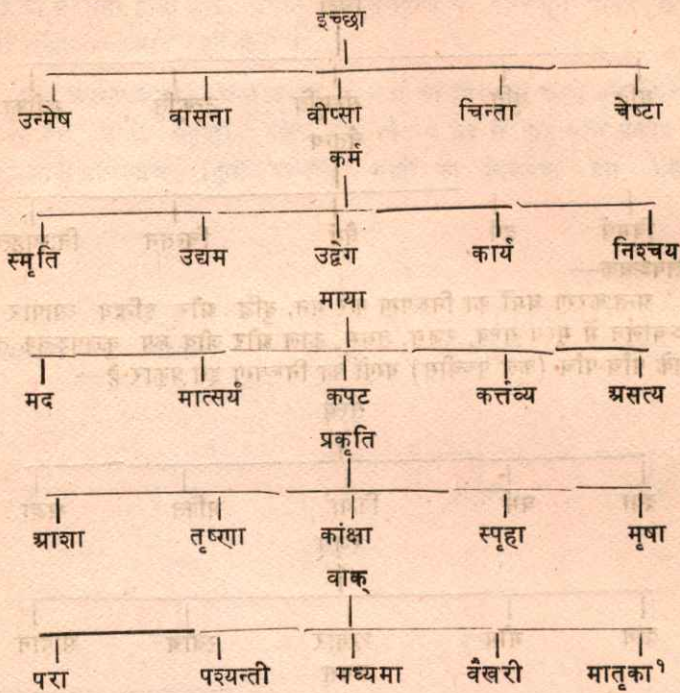 इच्छा
उन्मेष वासना वीप्सा चिन्ता चेष्टा
कर्म
स्मृति उद्यम उद्वेग कार्य निश्चय
माया
मद मात्सर्य कपट कर्त्तव्य असत्य
प्रकृति
आशा तृष्णा कांक्षा स्पृहा मृषा
वाक्
परा पश्यन्ती मध्यमा वैखरी मातृका१